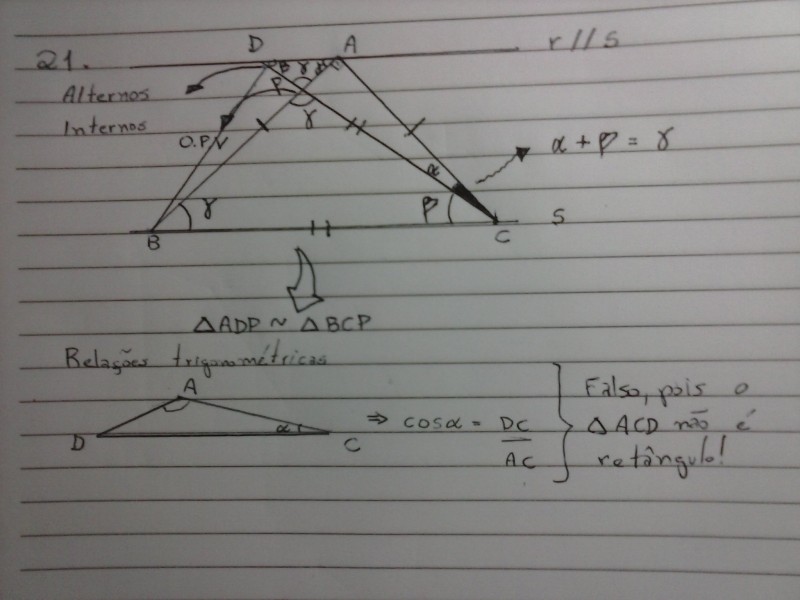 21.
D A r // S
β γ α
Alternos
Internos
P
O.P.V
γ
α
α + β = γ
γ
β
B C S
△ADP ~ △BCP
Relações trigonométricas
A
D α C
⇒ cosα = DC
AC
Falso, pois o
△ ACD não é
retângulo!